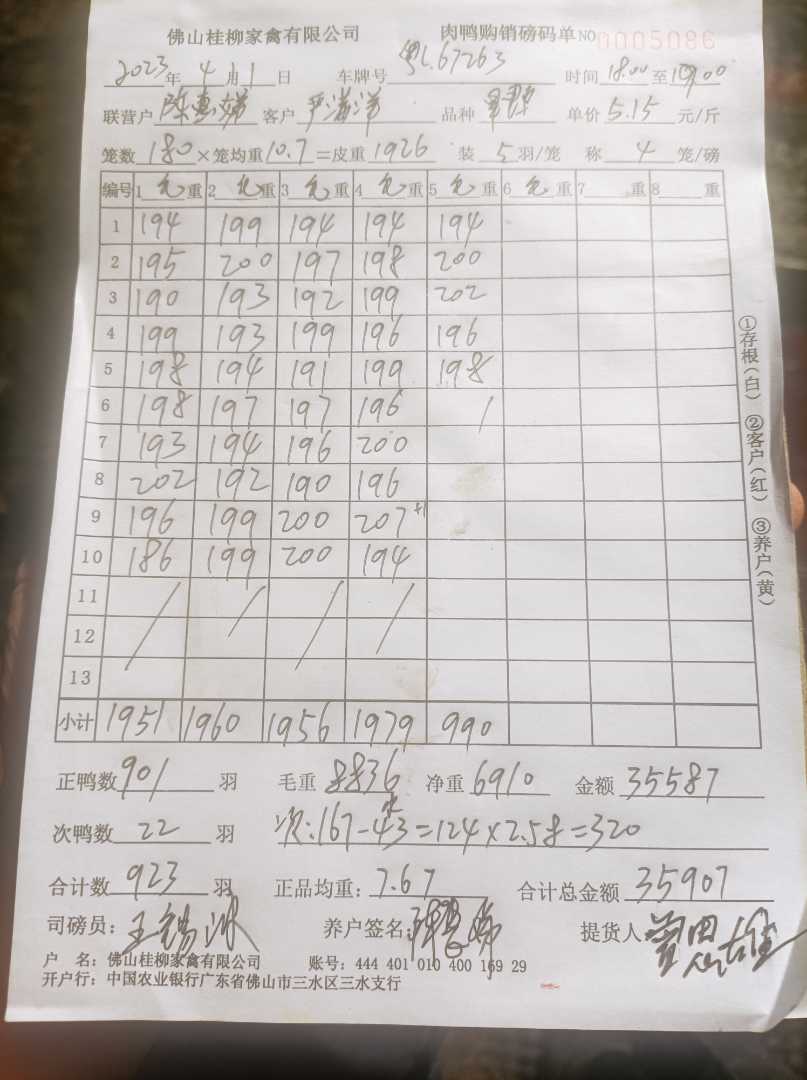 佛山桂柳家禽有限公司 肉鸭购销磅码单 NO 0005086
2023年4月1日 车牌号 粤L67263 时间 18:00 至 19:00
联营户 客户 品种 单价 5.15 元/斤
笼数 180 ×笼均重 10.7 =皮重 1926 装 5 羽/笼 称 4 笼/磅
编号 1 毛重 2 毛重 3 毛重 4 毛重 5 毛重 6 毛重 7 重 8 重
1 194 199 194 194 194
2 195 200 197 198 200
3 190 193 192 199 202
4 199 193 199 196 196
5 198 194 191 199 198
6 198 197 197 196 /
7 193 194 196 200
8 202 192 190 196
9 196 199 200 207 +1
10 186 199 200 194
11 / / / /
12
13
小计 1951 1960 1956 1979 990
正鸭数 901 羽 毛重 8836 净重 6910 金额 35587
次鸭数 22 羽 次:167-43=124×2.58=320
合计数 923 羽 正品均重: 7.67 合计总金额 35907
司磅员: 养户签名: 提货人
户 名: 佛山桂柳家禽有限公司 账号: 444 401 010 400 169 29
开户行: 中国农业银行广东省佛山市三水区三水支行
①存根(白) ②客户(红) ③养户(黄)